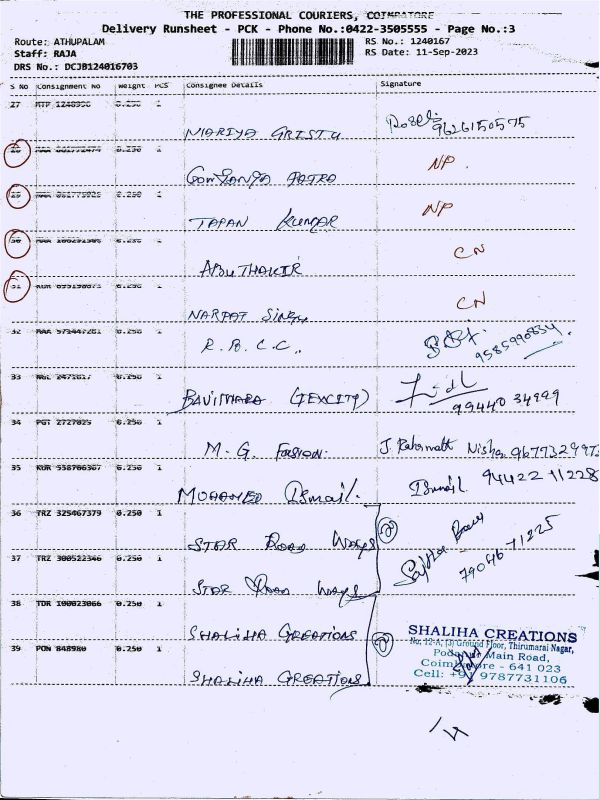 THE PROFESSIONAL COURIERS, COIMBATORE
Delivery Runsheet - PCK - Phone No.:0422-3505555 - Page No.:3
Route: ATHUPALAM
RS No.: 1240167
Staff: RAJA
RS Date: 11-Sep-2023
DRS No.: DCJB124016703
S No Consignment No Weight PCS Consignee Details Signature
27 0.250 1
MARIYA GRISTU 9626150575
0.250 1
NP.
0.250 1
TAPAN KUMAR NP
30 0.250 1
ABUTHAKIR CN
31 0.250 1
NARPAT SINGH CN
32 0.250 1
R.B.C.C. 9585990834
33 0.250 1
(TEXCITY) 99440 34999
34 PGT 2727025 0.250 1
M.G. FASION. J. Rahamath Nisha 9677329973
35 KUR 558706367 0.250 1
MOHAMED Ismail. Ismail. 94422 11228
36 TRZ 325467379 0.250 1
STAR ROAD WAYS 2
37 TRZ 300522346 0.250 1
STAR ROAD WAYS 79046 71225
38 TDR 100023066 0.250 1
SHALIHA CREATIONS 2
39 PON 848980 0.250 1
SHALIHA CREATIONS
SHALIHA CREATIONS
No. 12-A, (3) Ground Floor, Thirumarai Nagar,
Main Road,
Coimbatore - 641 023
Cell: +91 9787731106